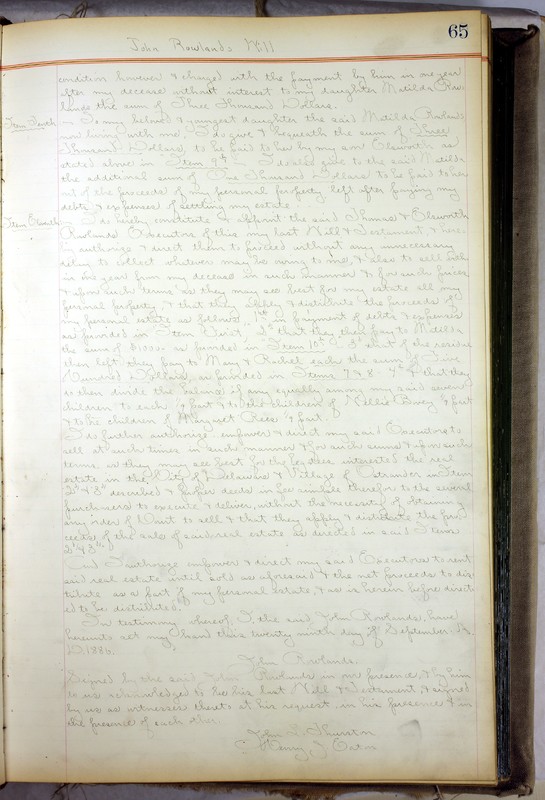 65
John Rowlands Will
condition however & charged with the payment by him in one year
after my decease without interest to my daughter Matilda Row
lands the sum of Three Thousand Dollars.
To my beloved & youngest daughter the said Matilda Rowlands
now living with me, I do give & bequeath the sum of Three
Thousand Dollars, to be paid to her by my son Elsworth as
stated above in Item 9th. I do also give to the said Matilda
the additional sum of One Thousand Dollars to be paid to her
out of the proceeds of my personal property left after paying my
debts & expenses of settling my estate.
Item Eleventh
I do hereby constitute & appoint the said Thomas & Elsworth
Rowlands Executors of this my last Will & Testament, & here-
by authorize & direct them to proceed without any unnecessary
delay to collect whatever may be owing to me, & also to sell
in one year from my decease in such manner & for such prices
& upon such terms as they may see best for my estate all my
personal property, & that they apply & distribute the proceeds of
my personal estate as follows, 1st in payment of debts & expenses
as provided in Item First. 2d that they then pay to Matilda
the sum of $1000. as provided in Item 10th. 3d that of the residue
then left they pay to Mary & Rachel each the sum of Five
Hundred Dollars, as provided in Items 7 & 8. 4th & that they
so then divide the balance if any equally among my said seven
children to each 1/9 part & to the children of Nellie 1/9 part
& to the children of Margaret Rees 1/9 part.
I do further authorize, empower & direct my said Executors to
sell at such times in such manner & for such sums & upon such
terms, as they may see best for the legatees interested the real
estate in the City of Delaware & Village of Ostrander in Items
2d & 3d described & proper deeds in fee simple therefor to the several
purchasers to execute & deliver, without the necessity of obtaining
any order of Court to sell & that they apply & distribute the pro
ceeds of the sale of said real estate as directed in said Items
2d & 3d.
And I authorize empower & direct my said Executors to rent
said real estate until sold as aforesaid & the net proceeds to dis-
tribute as a part of my personal estate, & as is herein before direct-
ed to be distributed.
In testimony whereof, I, the said John Rowlands, have
hereunto set my hand this twenty ninth day of September A.
D. 1886.
John Rowlands.
Signed by the said John Rowlands in our presence, & by him
to us acknowledged to be his last Will & Testament, & signed
by us as witnesses thereto at his request, in his presence & in
the presence of each other.
John S. Thurston
Henry J. Eaton